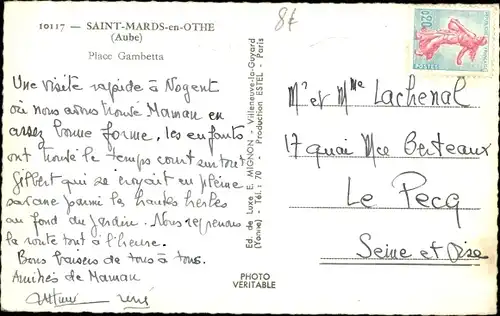 10117 — SAINT-MARDS-en-OTHE
(Aube)
Place Gambetta
8€
0,20
POSTES
Une visite rapide à Nogent
où nous avons trouvé Maman en
assez bonne forme, les enfants
ont trouvé le temps court surtout
Gilbert qui se croyait en pleine
savane parmi les hautes herbes
au fond du jardin. Nous reprenons
la route tout à l'heure.
Bons baisers de tous à tous.
Amitiés de Maman
René
Ed. de Luxe E. MIGNON - Villeneuve-la-Guyard
(Yonne) - Tél. : 70 - Production ESTEL - Paris
PHOTO
VERITABLE
Mr et Mme Lachenal
17 quai Mce Berteaux
Le Pecq
Seine et Oise